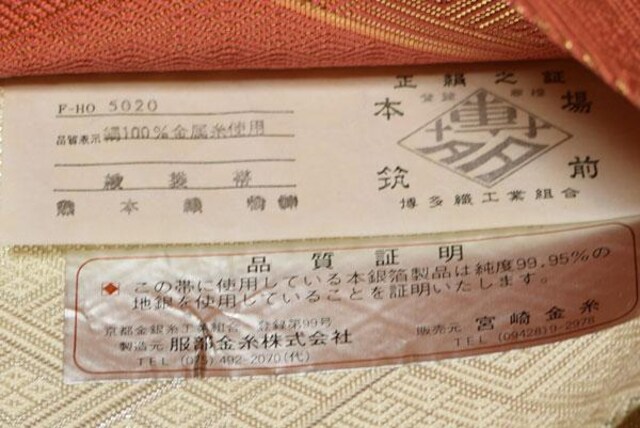 F-HO 5020
品質表示 絹100%金属糸使用
正絹之証
登録 商標
本場
博多
筑前
博多織工業組合
品質証明
この帯に使用している本銀箔製品は純度99.95%の
地銀を使用していることを証明いたします。
京都金銀糸工業組合 登録第99号
製造元 服部金糸株式会社
TEL (075)-492-2070(代)
販売元 宮崎金糸
TEL (09428)9-2978